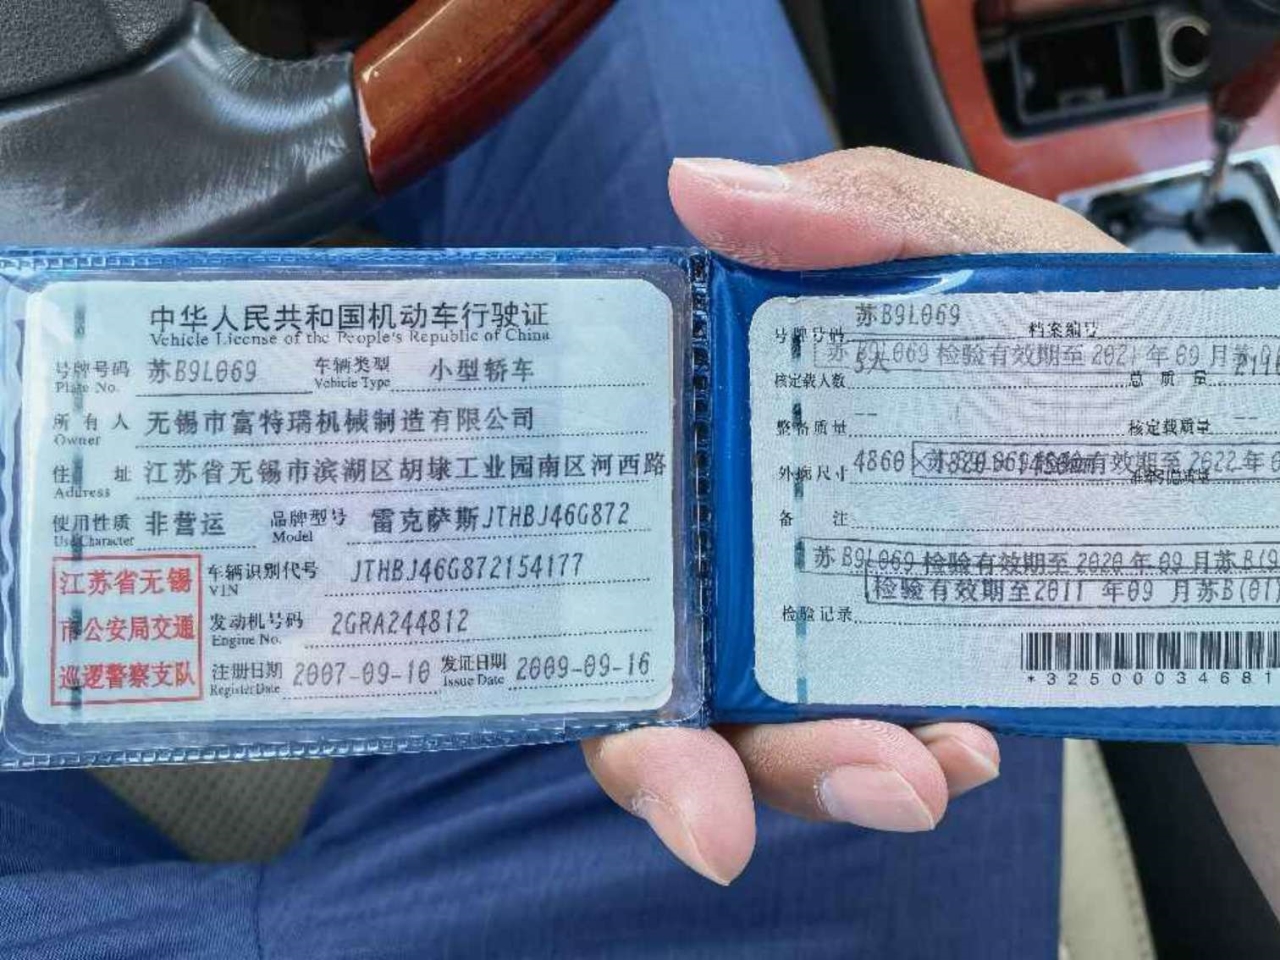 中华人民共和国机动车行驶证
Vehicle License of the People's Republic of China
号牌号码 苏B9L069 车辆类型 小型轿车
Plate No. Vehicle Type
所有人 无锡市富特瑞机械制造有限公司
Owner
住址 江苏省无锡市滨湖区胡埭工业园南区河西路
Address
使用性质 非营运 品牌型号 雷克萨斯JTHBJ46G872
Use Character Model
江苏省无锡
市公安局交通
巡逻警察支队
车辆识别代号 JTHBJ46G872154177
VIN
发动机号码 2GRA244812
Engine No.
注册日期 2007-09-10 发证日期 2009-09-16
Register Date Issue Date
号牌号码 苏B9L069 档案编号
苏B9L069 检验有效期至 2021 年 09 月
核定载人数 5人 总质量
整备质量 -- 核定载质量 --
外廓尺寸 4860
检验有效期至 2022 年
备注
苏B9L069 检验有效期至 2020 年 09 月苏B(
检验有效期至2011 年09 月苏B(01)
检验记录
*325000034681